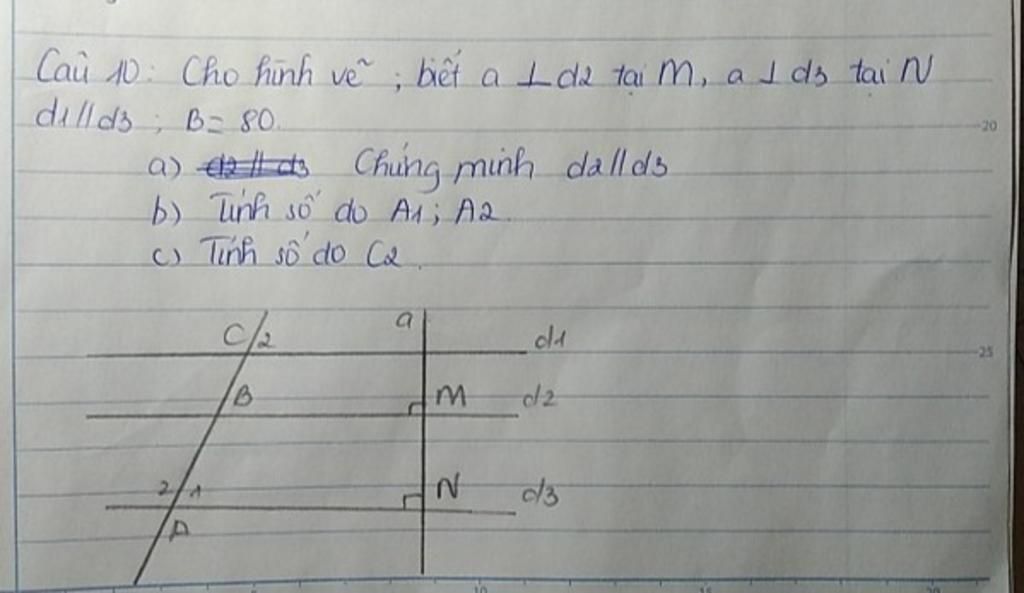 Câu 10: Cho hình vẽ ; biết a ⊥ d2 tại M, a ⊥ d3 tại N
d1//d3 ; B = 80.
a) d2//d3 Chứng minh d2//d3
b) Tính số do A1 ; A2.
c) Tính số do C2.
C 2 a d1
B M d2
2 1 N d3
A
20
25
10
15
20